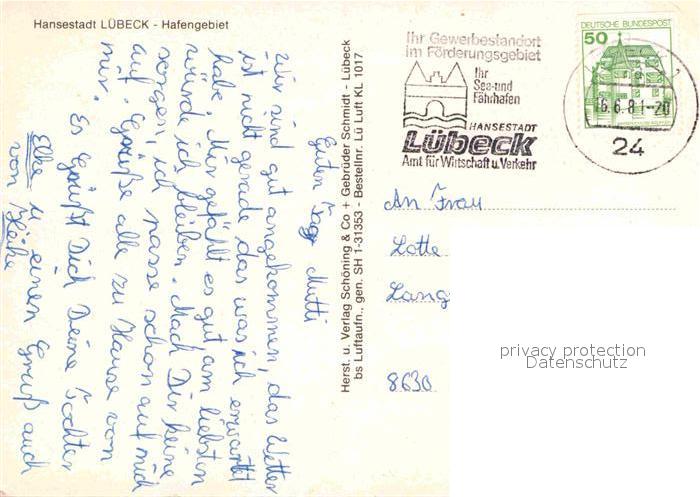 Hansestadt LÜBECK - Hafengebiet
Guten Tag Mutti
Wir sind gut angekommen, das Wetter
ist nicht gerade das was ich erwartet
habe. Mir gefählt es gut am liebsten
würde ich bleiben. Mach Dir keine
sorgen, ich passe schon auf mich
auf. Grüße alle zu Hause von
mir.
Es Grüßt Dich Deine Tochter
Elke u einen Gruß auch
von
Herst. u. Verlag Schöning & Co + Gebrüder Schmidt - Lübeck
bs Luftaufn., gen. SH 1-31353 - Bestellnr. Lü Luft KL 1017
Ihr Gewerbestandort
im Förderungsgebiet
Ihr
See-und
Fährhafen
HANSESTADT
Lübeck
Amt für Wirtschaft u. Verkehr
DEUTSCHE BUNDESPOST
50
16.6.81-20
24
An Frau
Lotte
Lang
8630
privacy protection
Datenschutz